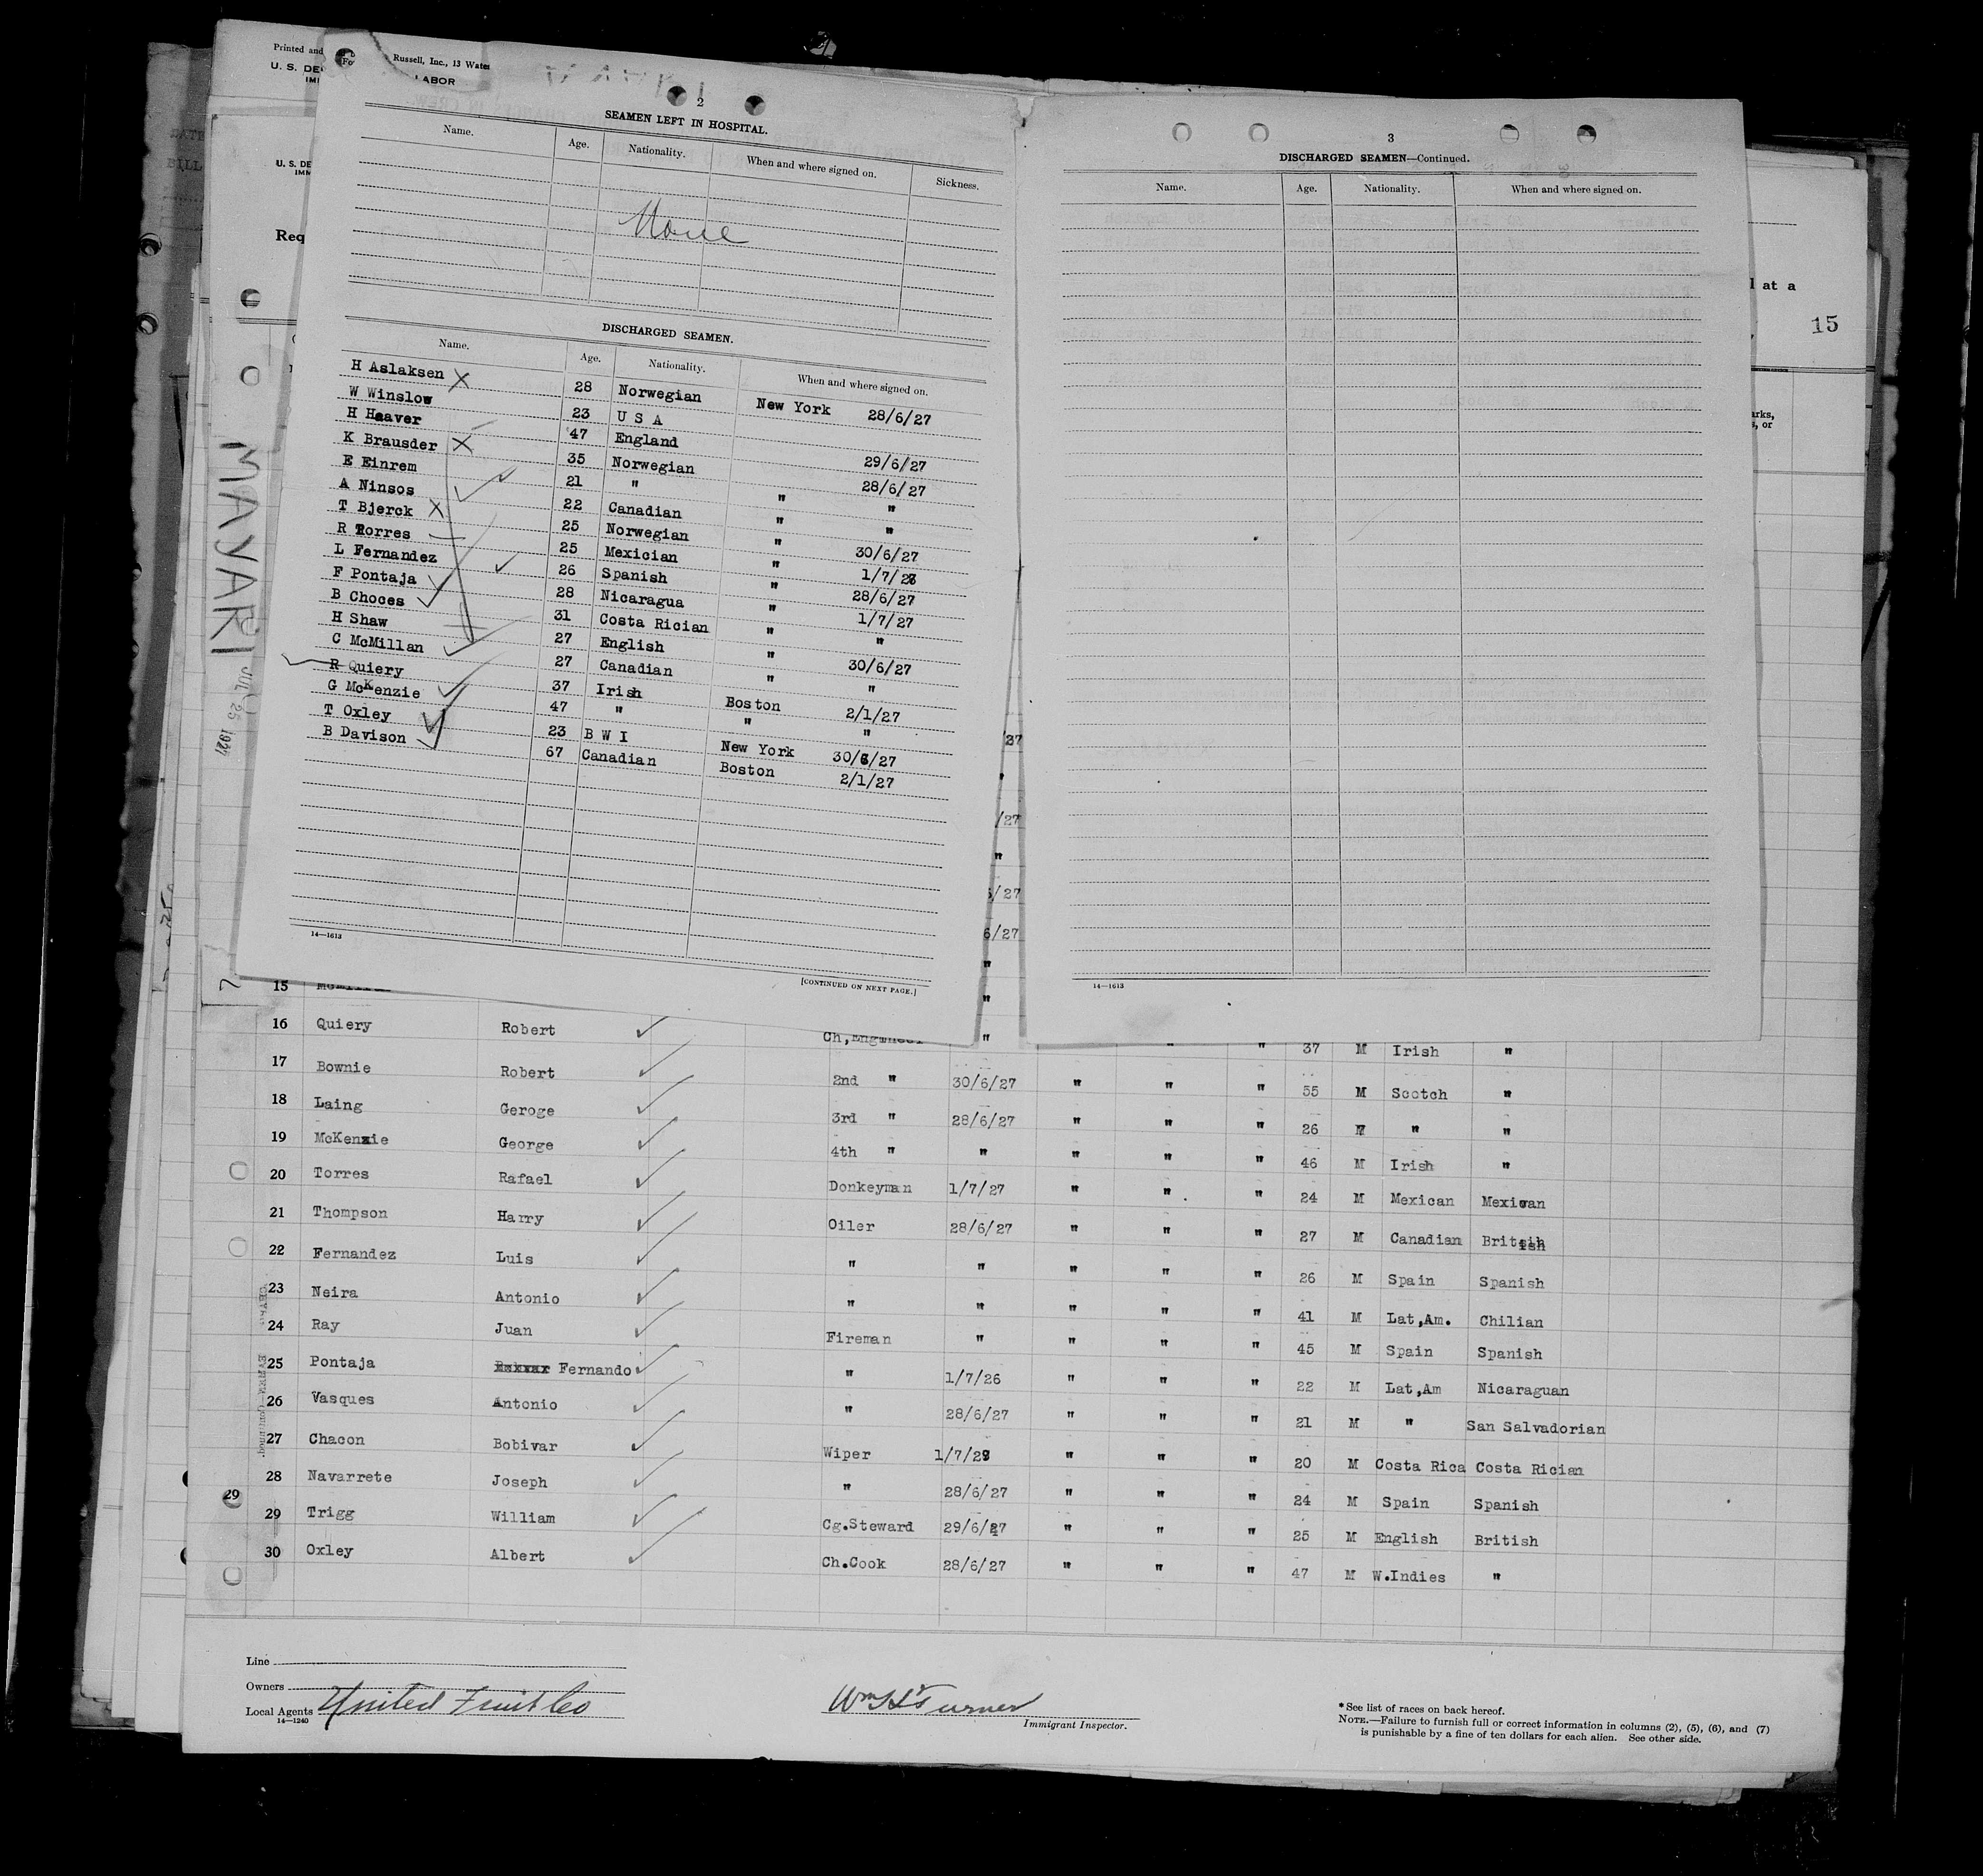 Printed and
Russell, Inc., 13 Water
U. S. DE
LABOR
IMI
U. S. DE
IMM
Req
MAYARI
JUL 25 1927
2
SEAMEN LEFT IN HOSPITAL.
Name. Age. Nationality. When and where signed on. Sickness.
None
DISCHARGED SEAMEN.
Name. Age. Nationality. When and where signed on.
H Aslaksen X 28 Norwegian New York 28/6/27
W Winslow 23 U S A
H Haaver 47 England 29/6/27
K Brausder X 35 Norwegian 28/6/27
E Einrem 21 " " "
A Ninsos 22 Canadian " "
T Bjerck X 25 Norwegian " 30/6/27
R Torres 25 Mexician " 1/7/28
L Fernandez 26 Spanish " 28/6/27
F Pontaja 28 Nicaragua " 1/7/27
B Choces 31 Costa Rician " "
H Shaw 27 English " 30/6/27
C McMillan 27 Canadian " "
R Quiery 37 Irish Boston 2/1/27
G McKenzie 47 " " "
T Oxley 23 B W I New York 30/6/27
B Davison 67 Canadian Boston 2/1/27
14—1613
[CONTINUED ON NEXT PAGE.]
3
DISCHARGED SEAMEN—Continued.
Name. Age. Nationality. When and where signed on.
14—1613
l at a
15
arks,
s, or
/27
"
/27
"
6/27
6/27
"
"
15
16 Quiery Robert Ch,Engineer " " " 37 M Irish "
17 Bownie Robert 2nd " 30/6/27 " " " 55 M Scotch "
18 Laing Geroge 3rd " 28/6/27 " " " 26 M " "
19 McKenzie George 4th " " " " " 46 M Irish "
20 Torres Rafael Donkeyman 1/7/27 " " " 24 M Mexican Mexican
21 Thompson Harry Oiler 28/6/27 " " " 27 M Canadian British
22 Fernandez Luis " " " " " 26 M Spain Spanish
23 Neira Antonio " " " " " 41 M Lat,Am. Chilian
24 Ray Juan Fireman " " " " 45 M Spain Spanish
25 Pontaja Fernando " 1/7/26 " " " 22 M Lat,Am Nicaraguan
26 Vasques Antonio " 28/6/27 " " " 21 M " San Salvadorian
27 Chacon Bobivar Wiper 1/7/28 " " " 20 M Costa Rica Costa Rician
28 Navarrete Joseph " 28/6/27 " " " 24 M Spain Spanish
29
29 Trigg William Cg.Steward 29/6/27 " " " 25 M English British
30 Oxley Albert Ch.Cook 28/6/27 " " " 47 M W.Indies "
Line
Owners
Local Agents United Fruit Co
14—1240
Wm H Turner
Immigrant Inspector.
* See list of races on back hereof.
NOTE.—Failure to furnish full or correct information in columns (2), (5), (6), and (7)
is punishable by a fine of ten dollars for each alien. See other side.